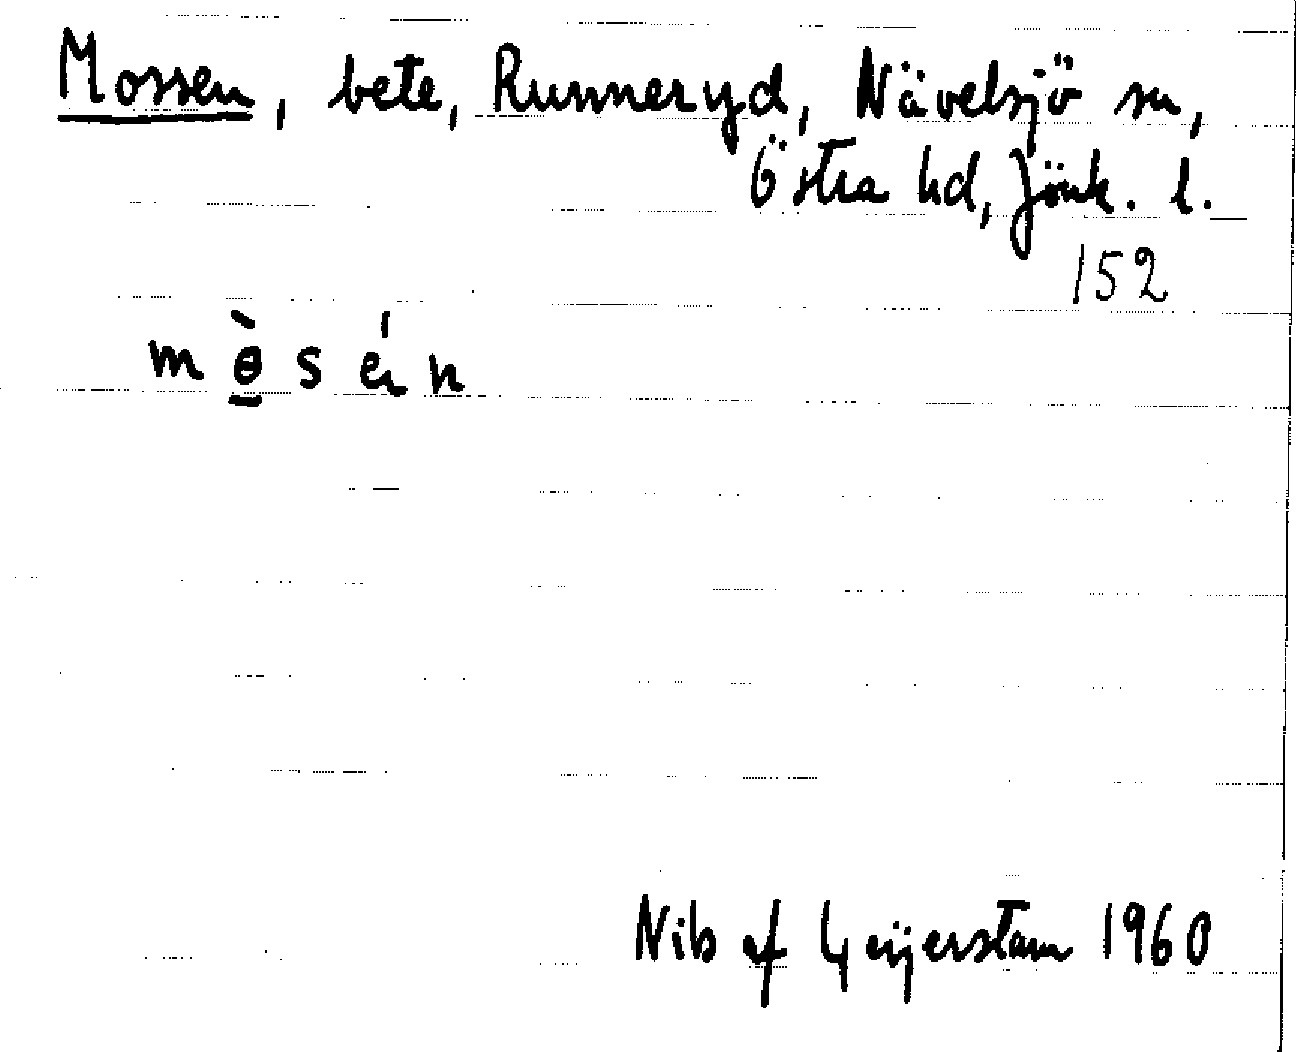 Mossen, bete, Runneryd, Nävelsjö sn,
Östra hd, Jönk. l.
152
m ɵ̠̀ s é n
Nils af Geijerstam 1960